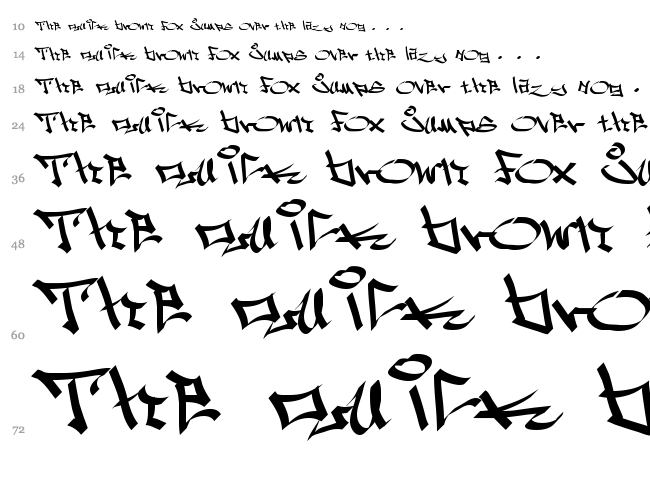 10 The quick brown fox jumps over the lazy dog . . .
14 The quick brown fox jumps over the lazy dog . . .
18 The quick brown fox jumps over the lazy dog .
24 The quick brown fox jumps over the
36 The quick brown fox ju
48 The quick brown
60 The quick bro
72 The quick b